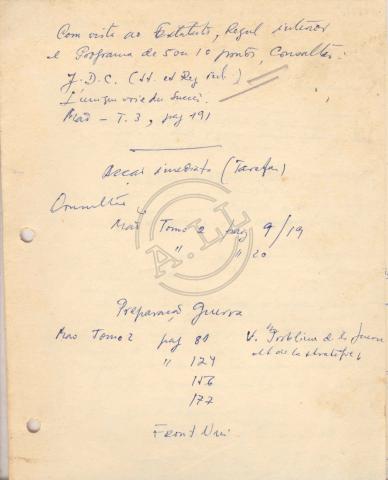 Com vista ao Estatuto, Regul interior
e Programa de 5 ou 10 pontos, Consultar:
J.D.C. (St. et Reg int.)
L'unique voie du Succès.
Mao - T. 3, pag 191
Accao imediata (Tarefas)
Consultar
Mao Tomo 2 pag 9/19
" " 20
A.LL
Preparação Guerra
Mao Tomo 2 pag 81
" 124
156
177
V. "Problèmes de la guerre
et de la stratégie"
Front Uni